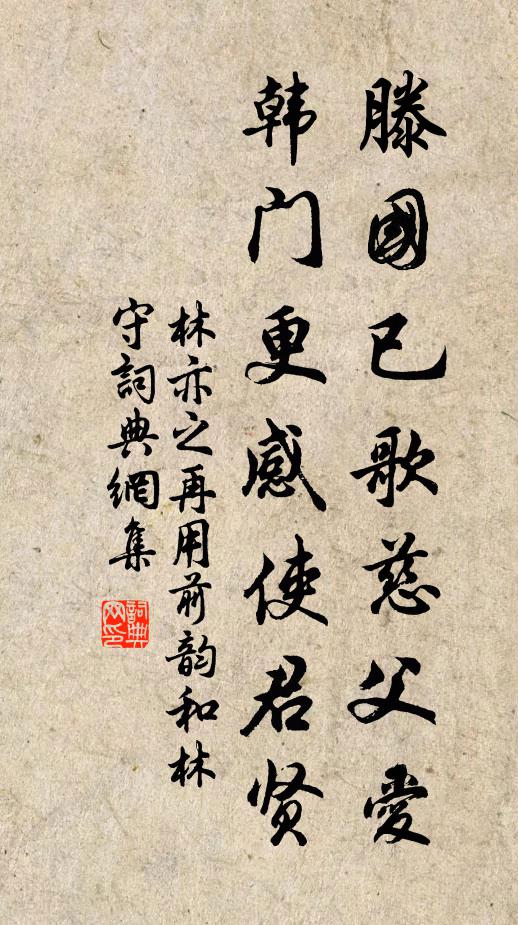 滕國已歌慈父愛
韩门更感使君贤
林亦之再用前韵和林
守詞典網集
詞典
网印